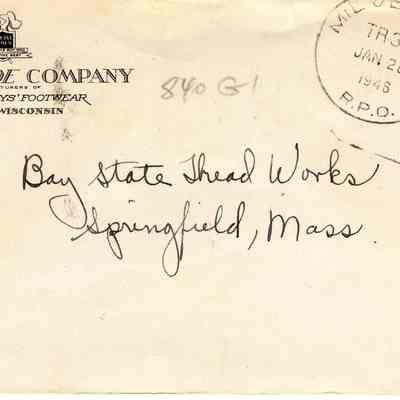 COMPANY
YS' FOOTWEAR
WISCONSIN
840 G1
MIL
TR3
JAN 28
1946
R.P.O.
Bay State Thread Works
Springfield, Mass.